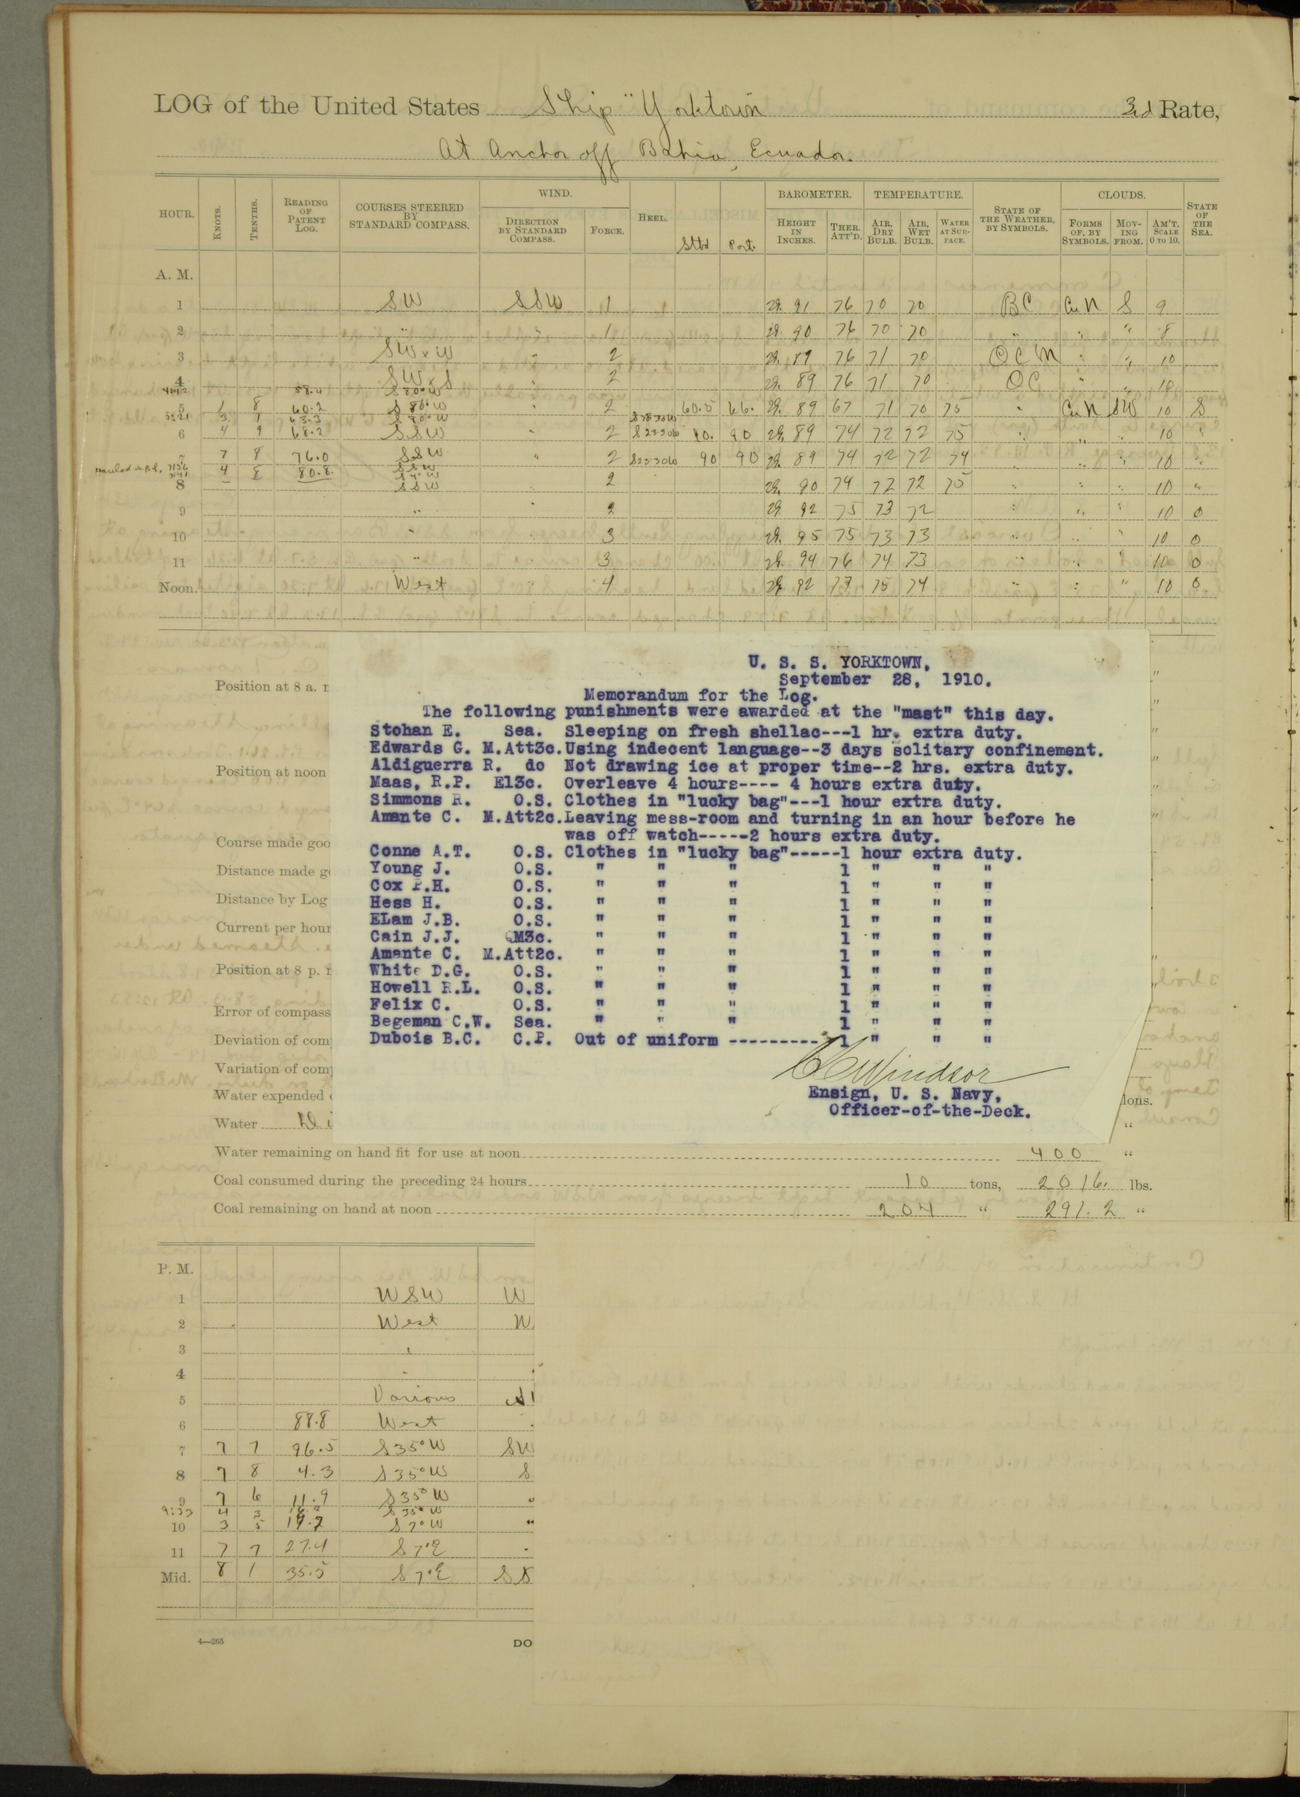 LOG of the United States Ship "Yorktown" 3rd Rate,
At Anchor off Bahia, Ecuador.
HOUR. KNOTS. TENTHS. READING OF PATENT LOG. COURSES STEERED BY STANDARD COMPASS. WIND. DIRECTION BY STANDARD COMPASS. FORCE. HEEL. Stbd Port BAROMETER. HEIGHT IN INCHES. THER. ATT'D. TEMPERATURE. AIR, DRY BULB. AIR, WET BULB. WATER AT SURFACE. STATE OF THE WEATHER, BY SYMBOLS. CLOUDS. FORMS OF, BY SYMBOLS. MOVING FROM. AM'T. SCALE 0 TO 10. STATE OF THE SEA.
A. M.
1 SW SSW 1 29. 91 76 70 70 BC CuN S 9
2 " " 1 29. 90 76 70 70 " " " 8
3 SWxW " 2 29. 89 76 71 70 OCM " " 10
4 SWxS " 2 29. 89 76 71 70 OC " " 10
60.2 S 80° W " 2 60.5 66. 29. 89 67 71 70 75 " CuN SW 10 S
6 68.2 SSW " 2 90 29. 89 74 72 72 75 " " " 10 "
7 7 8 76.0 SSW " 2 90 90 29. 89 74 72 72 74 " " " 10 "
4 8 80.8
8 SSW " 2 29. 90 74 72 72 75 " " " 10 "
9 " " 2 29. 92 75 73 72 " " " 10 0
10 " " 3 29. 95 75 73 73 " " " 10 0
11 " " 3 29. 94 76 74 73 " " " 10 0
Noon. West " 4 29. 92 77 75 74 " " " 10 0
U. S. S. YORKTOWN,
September 28, 1910.
Memorandum for the Log.
The following punishments were awarded at the "mast" this day.
Stohan E. Sea. Sleeping on fresh shellac---1 hr. extra duty.
Edwards G. M.Att3c. Using indecent language--3 days solitary confinement.
Aldiguerra R. do Not drawing ice at proper time--2 hrs. extra duty.
Maas, R.P. El3c. Overleave 4 hours---- 4 hours extra duty.
Simmons R. O.S. Clothes in "lucky bag"---1 hour extra duty.
Amante C. M.Att2c. Leaving mess-room and turning in an hour before he
was off watch-----2 hours extra duty.
Conne A.T. O.S. Clothes in "lucky bag"-----1 hour extra duty.
Young J. O.S. " " " 1 " " "
Cox P.H. O.S. " " " 1 " " "
Hess H. O.S. " " " 1 " " "
ELam J.B. O.S. " " " 1 " " "
Cain J.J. QM3c. " " " 1 " " "
Amante C. M.Att2c. " " " 1 " " "
White D.G. O.S. " " " 1 " " "
Howell R.L. O.S. " " " 1 " " "
Felix C. O.S. " " " 1 " " "
Begeman C.W. Sea. " " " 1 " " "
Dubois B.C. C.P. Out of uniform --------- 1 " " "
Windsor
Ensign, U. S. Navy,
Officer-of-the-Deck.
Position at 8 a.
Position at noon
Course made goo
Distance made g
Distance by Log
Current per hour
Position at 8 p.
Error of compass
Deviation of com
Variation of com
Water expended
lons.
Water
Water remaining on hand fit for use at noon 400 "
Coal consumed during the preceding 24 hours 10 tons, 2016. lbs.
Coal remaining on hand at noon 204 " 291.2 "
P. M.
1 WSW W
2 West W
3 "
4 "
5 Various
6 88.8 West
7 7 7 96.5 S 35° W SW
8 7 8 4.3 S 35° W S
9 7 6 11.9 S 35° W "
9:33 4 S 35° W
10 3 5 19.7 S 7° W "
11 7 7 27.4 S 7° E
Mid. 8 1 35.5 S 7° E
4—265
DO